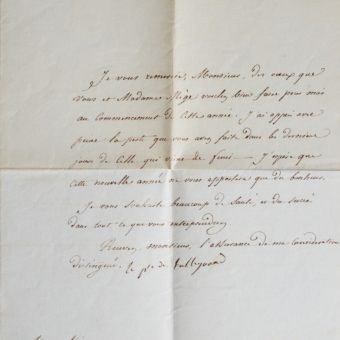 Je vous remercie, Monsieur, des vœux que
vous et Madame voulez bien faire pour moi
au commencement de cette année. J'ai appris avec
peine la perte que vous avez fait dans les derniers
jours de celle qui vient de finir — J'espère que
cette nouvelle année ne vous apportera que du bonheur.
Je vous souhaite beaucoup de santé, et du succès
dans tout ce que vous entreprendrez.
Recevez, monsieur, l'assurance de ma considération
distinguée. le pce de